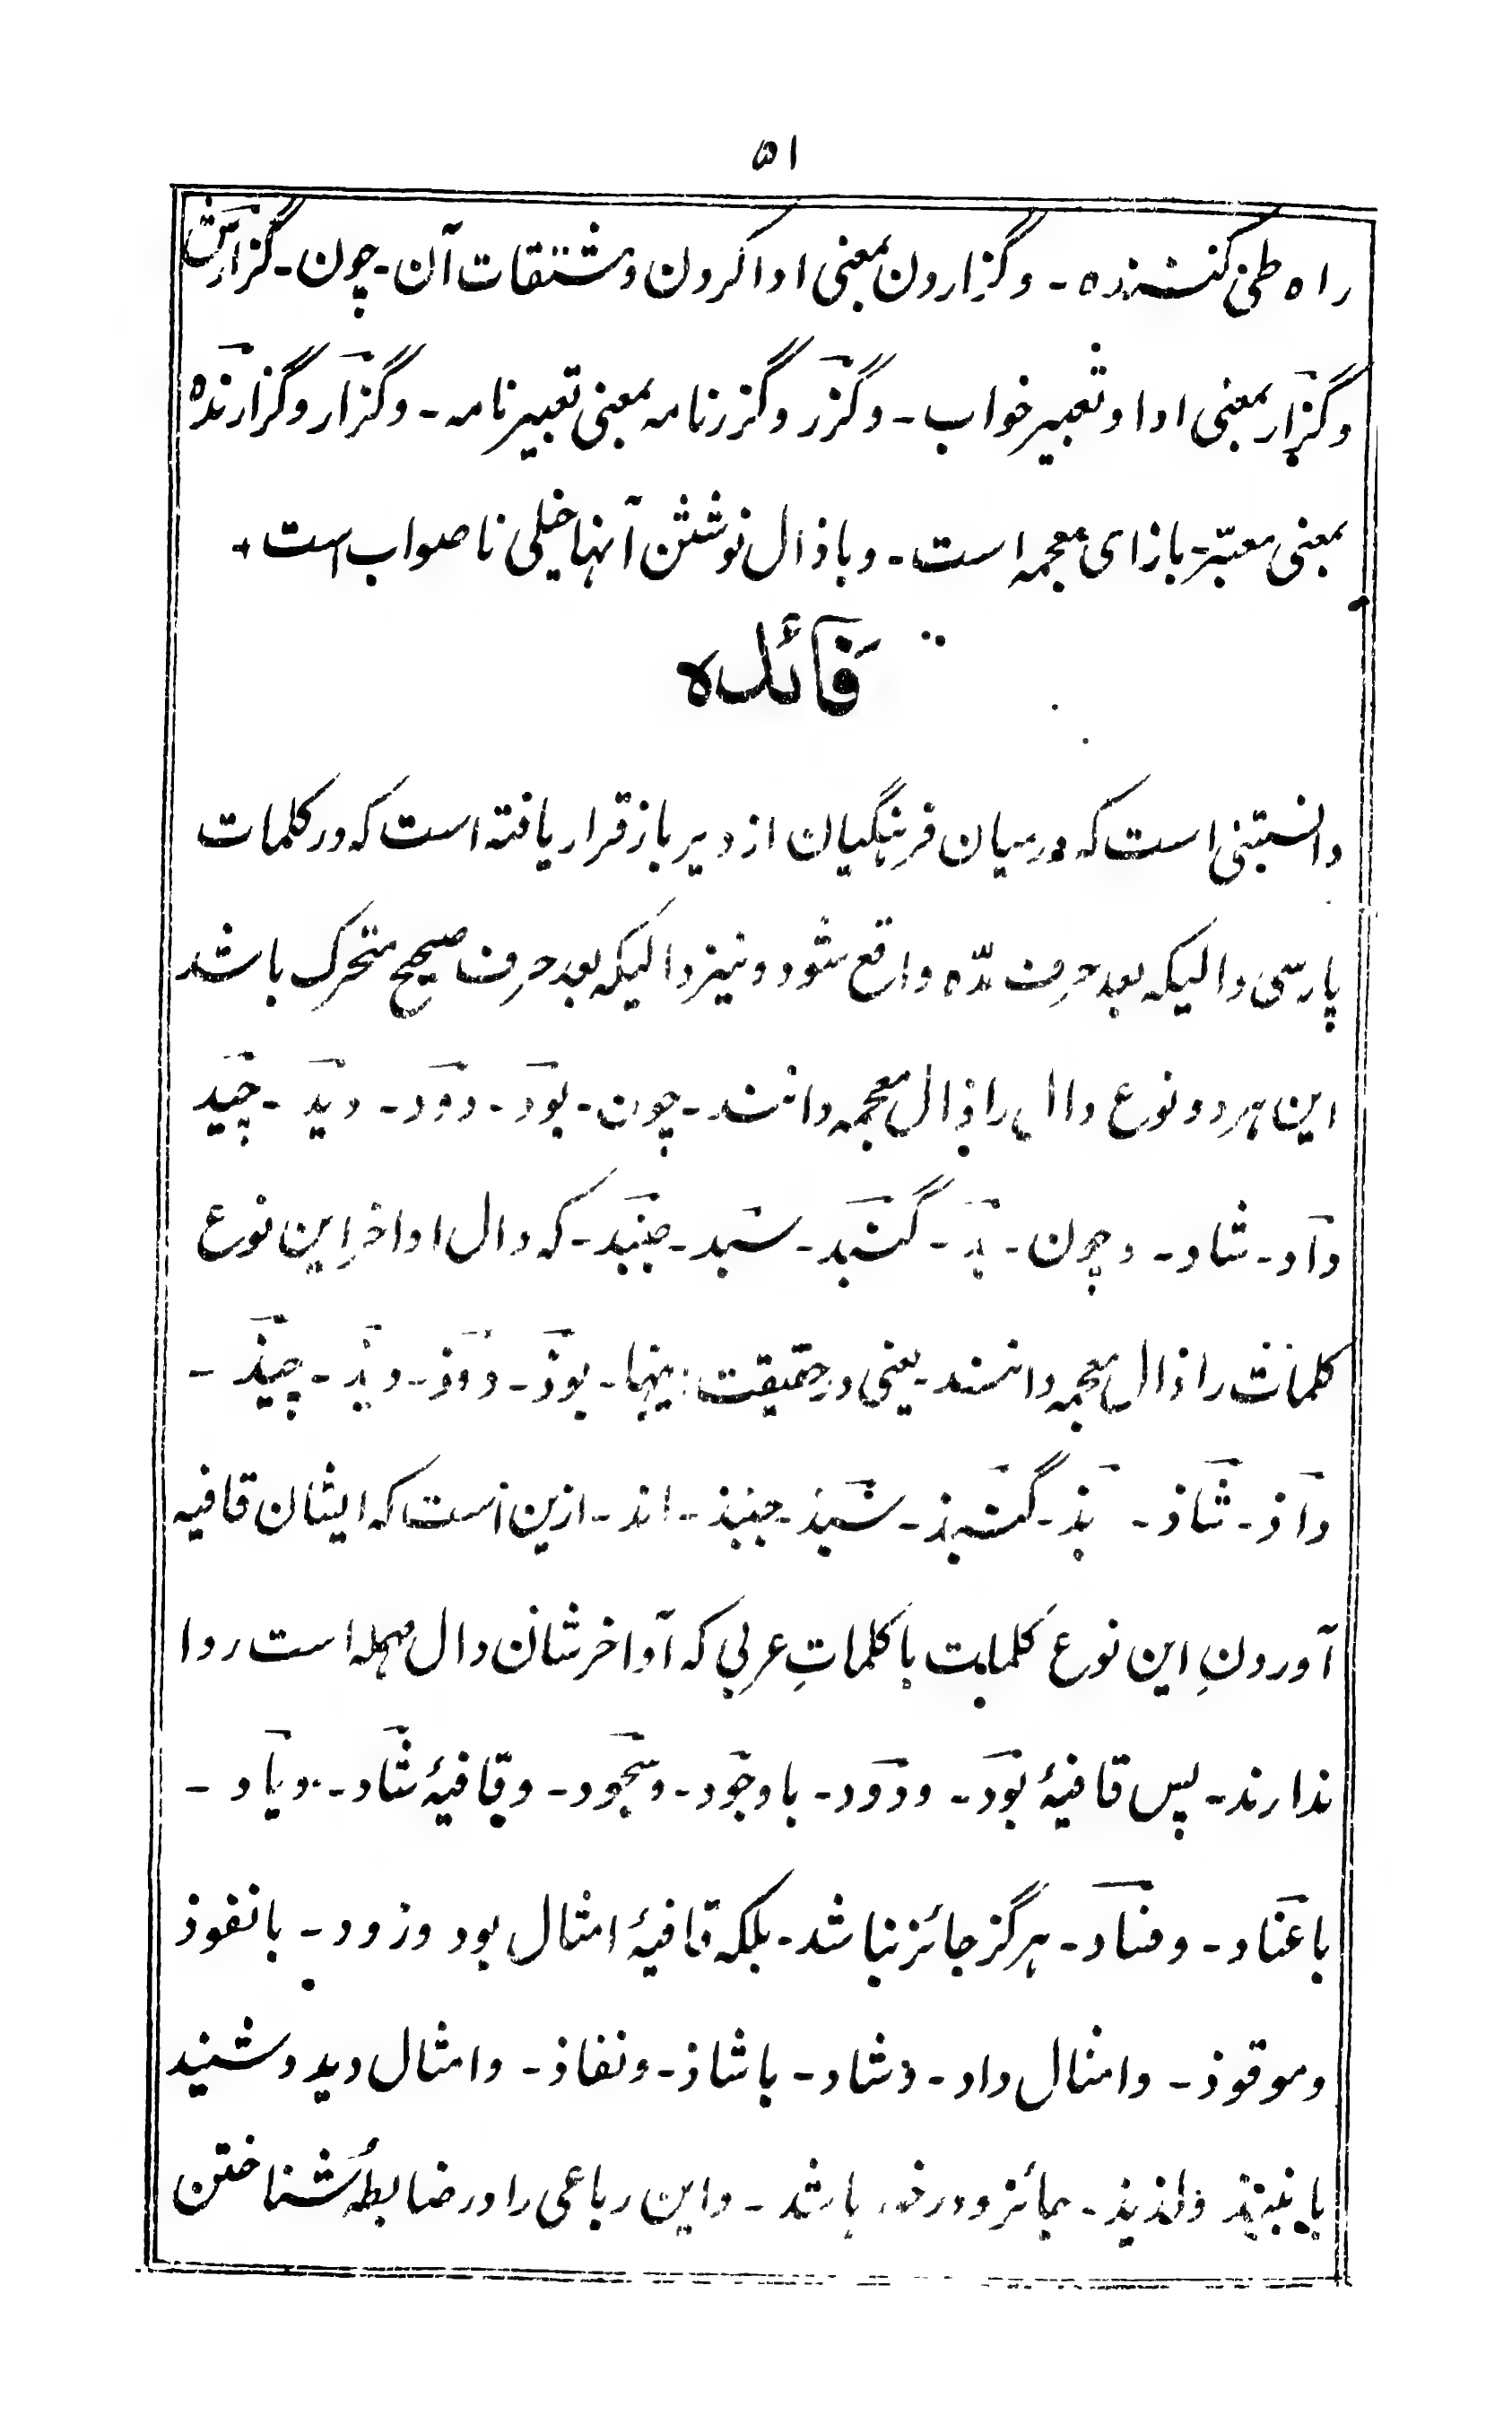 ۵۱
راه طی کننده - و گزاردن بمعنی ادا کردن و مشتقات آن - چون - گزارش
و گزار بمعنی ادا و تعبیر خواب - و گزر و گزرنامه بمعنی تعبیر نامه - و گزار و گزارنده
بمعنی معبّر - بازای معجمه است - و با ذال نوشتن آنها خیلی ناصواب است +
فائده
دانستنی است که درمیان فرهنگیان از دیر باز قرار یافته است که در کلمات
پارسی دالیکه بعد حرف مدّه واقع شود و نیز دالیکه بعد حرف صحیح متحرک باشد
این هر دو نوع دال را ذال معجمه دانند - چون - بود - دود - دید - چید
داد - شاد - و چون - بد - گنبد - سبد - جنبد - که دال اواخرِ این نوع
کلمات را ذال معجمه دانند - یعنی درحقیقت اینها - بوذ - دوذ - دیذ - چیذ -
داذ - شاذ - بذ - گنبذ - سبذ - جنبذ - اند - ازین است که ایشان قافیه
آوردنِ این نوع کلمات با کلماتِ عربی که آواخر شان دال مهمله است روا
ندارند - پس قافیۀ بود - و دود - با وجود - و سجود - و قافیۀ شاد - و یاد -
با عناد - و فساد - هرگز جائز نباشد - بلکه قافیۀ امثال بود و زود - با نفوذ
و موقوذ - و امثال داد - و شاد - با شاذ - و نفاذ - و امثال دید و شنید
با نبیذ و لذیذ - جائز و درخور باشد - و این رباعی را در ضابطۀ شناختن